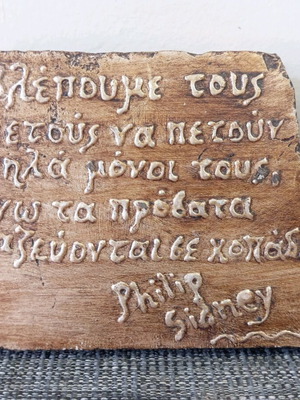 βλέπουμε τους
ετούς να πετούν
ηλά μόνοι τους,
νω τα πρόβατα
αζεύονται σε κοπάδ
Philip
Sidney